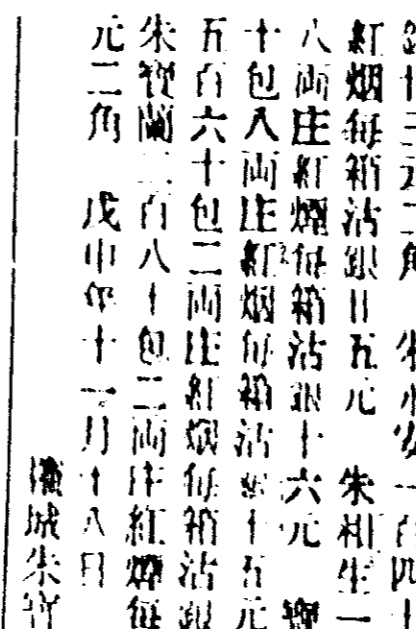 十三元二角 朱小安一百四十
紅烟每箱沽銀廿五元 朱相生一
八両庄紅烟每箱沽銀十六元 寶
十包八両庄紅烟每箱沽銀十五元
五百六十包二両庄紅烟每箱沽銀
朱寶蘭二百八十包二両庄紅烟每
元二角 戊申年十一月十八日
城朱寶